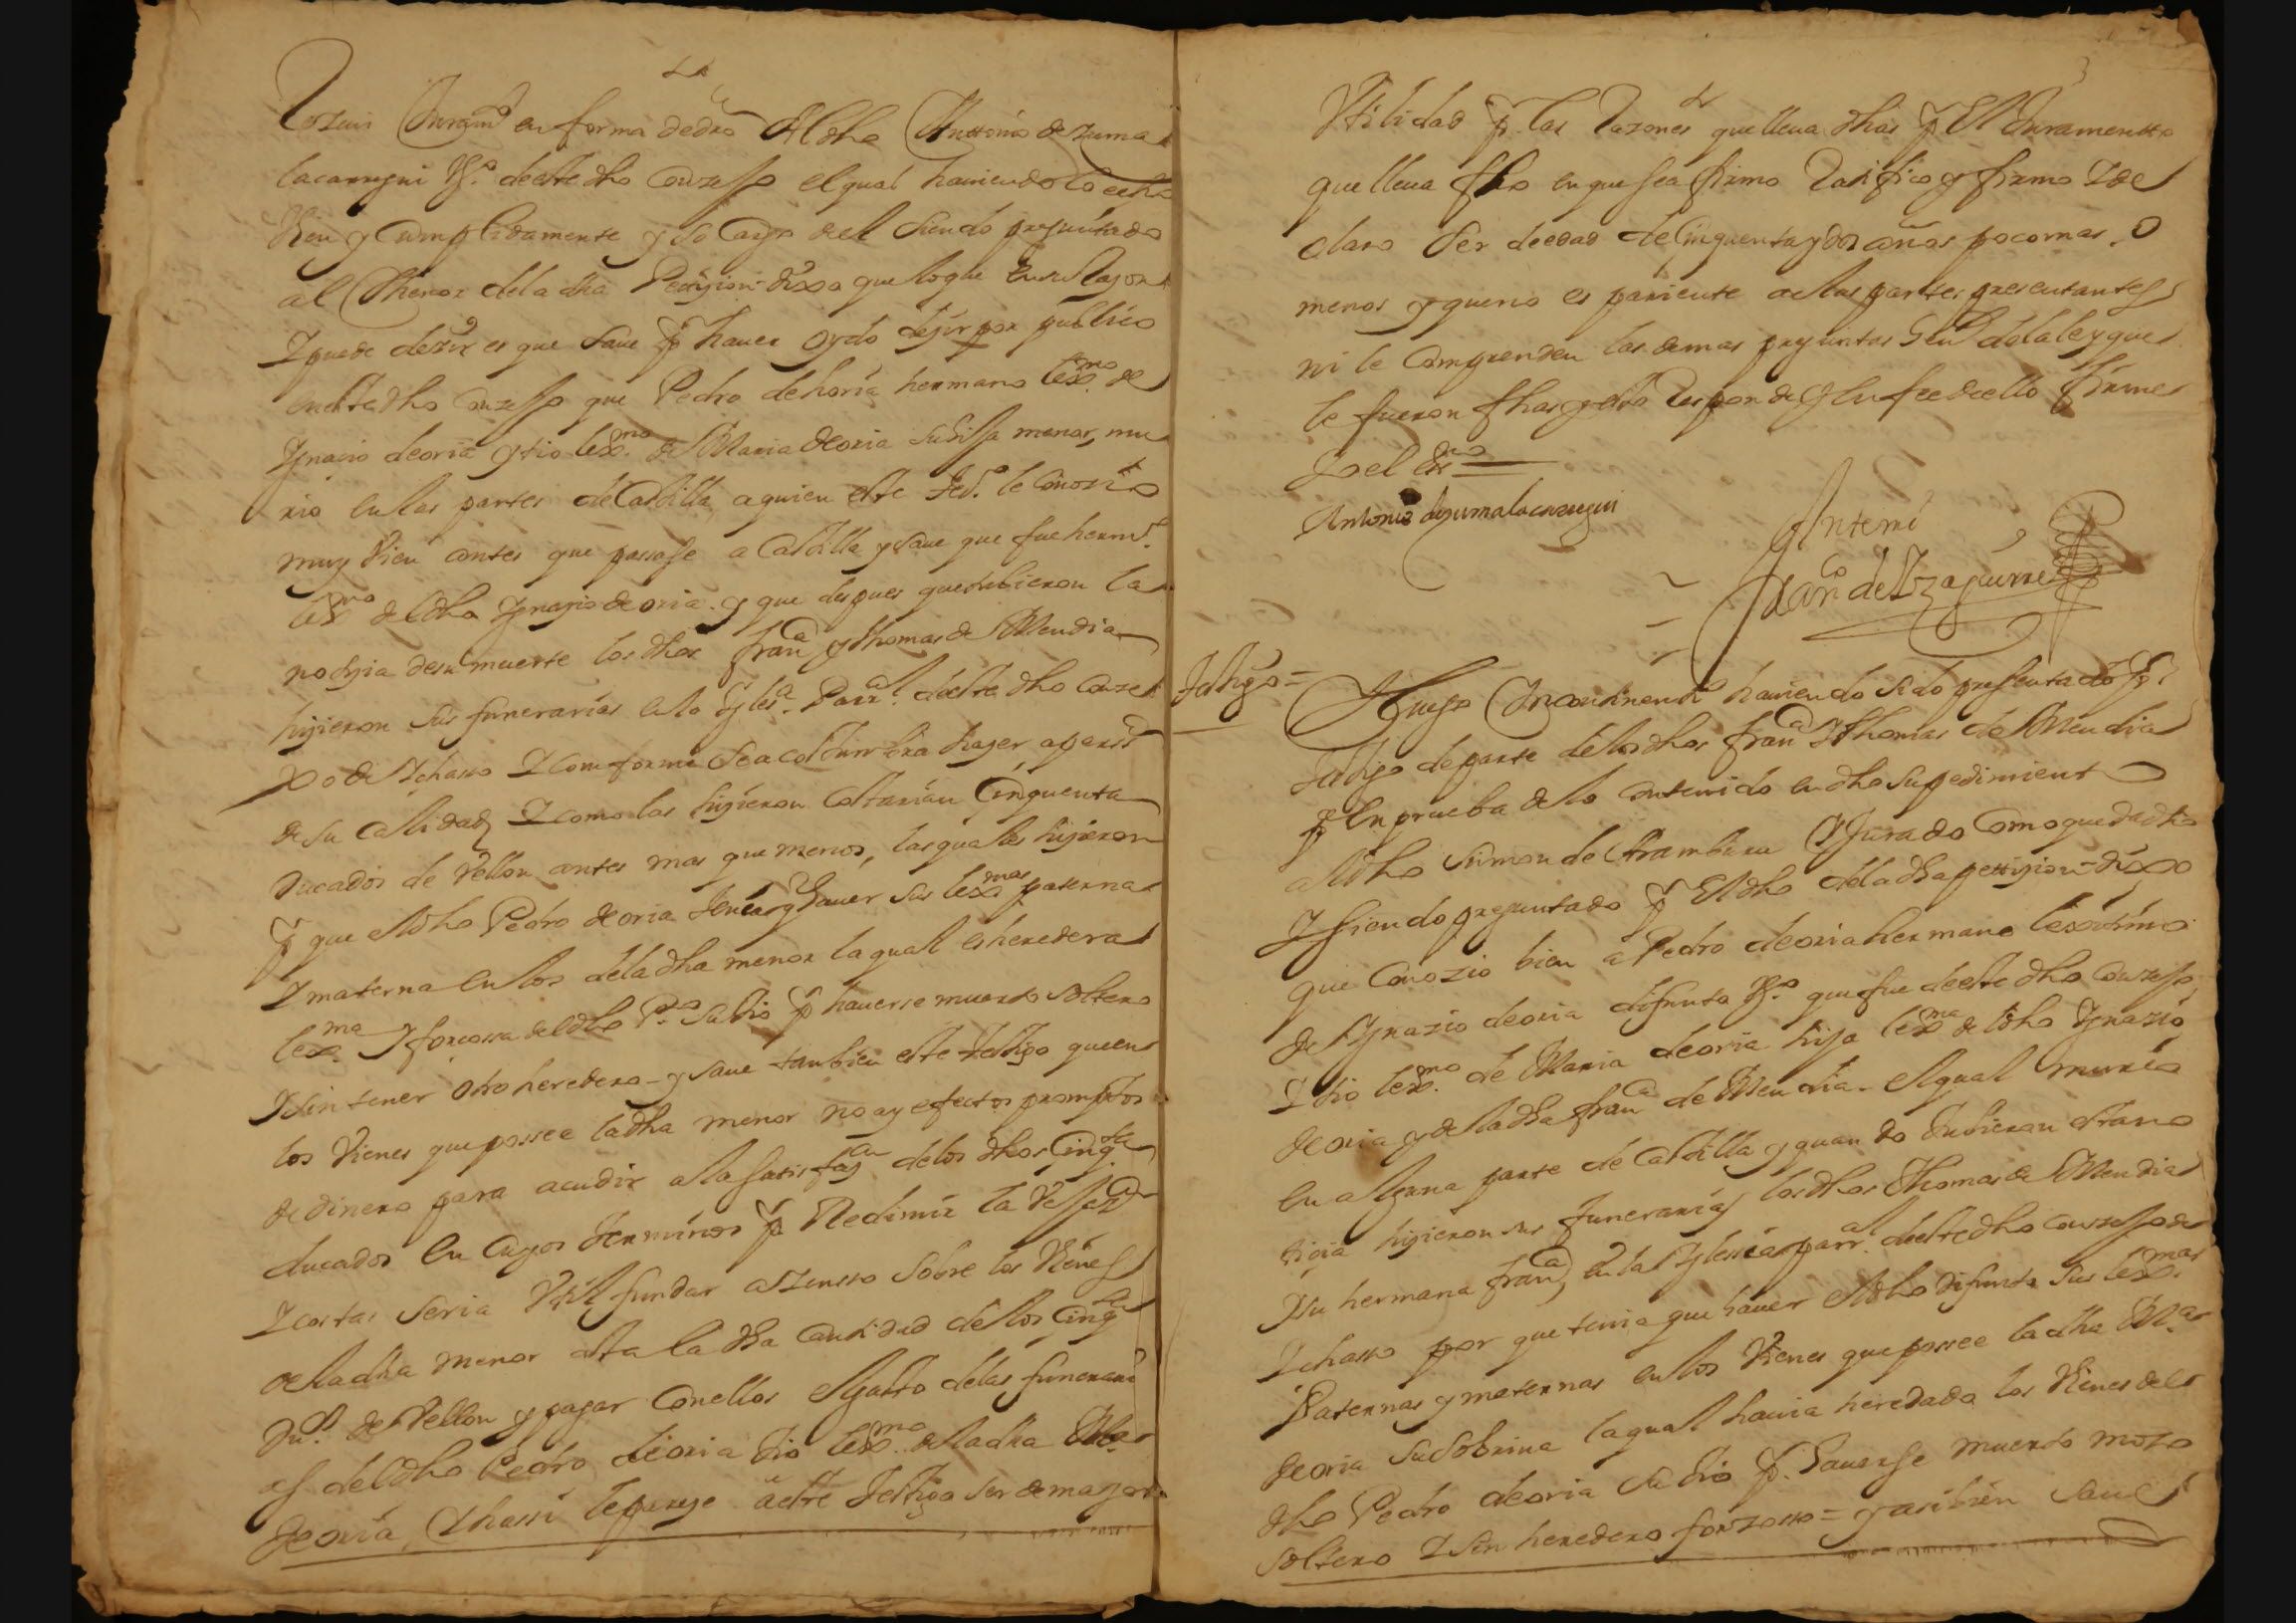 en forma de dro Al dho Anttonio de zuma
lacarregui Vº. deeste dho conzejo el qual hauiendo lo echo
Vien y Cumplidamente y so Cargo del siendo preguntado
al thenor dela dha Petiçion dixo que lo que
Y puede dezir es que saue Pr hauer oydo deçir por publico
en este dho conzejo que Pedro de horia hermano lexmo. de
Ygnacio deoria y tio lexmo. de Maria deoria su hija menor, mu
rio en las partes de Castilla a quien este tesº. le Conozio
muy Vien antes que passase a Castilla y saue que fue hermº.
lexmo del dho Ygnazio de oria. y que despues que tubieron la
notiçia desu muerte los dhos franca y thomas de Mendia
hiçieron sus funerarias en la Ygleª. Parral. deeste dho conze
xo de Ychasso Y comforme se acostumbra haçer a personas
de su Calidad, Y como las hiçieron Costarian Cinquenta
Ducados de Vellon antes mas que menos, las quales hiçieron
Pr que el dho Pedro deoria tenia y hauer sus lexmas paterna
Y materna en los dela dha menor la qual es heredera
lexma. Y forcossa del dho Pº su tio Pr hauerse muerto soltero
Y sin tener otro heredero - y saue tambien este testigo que en
los Vienes que possee la dha menor no ay efectos promptos
de dinero para acudir a la satisfazon delos dhos Cinqta
ducados en Cuyos terminos Pa Redimir la Vejaon
Y costas seria Vtil fundar a zensso sobre los Vienes
de la dha menor asta la dha cantidad de los Cinqta
Dus. de Vellon y pagar con ellos el gasto delas funerari
as del dho Pedro deoria tio lexmo. de la dha Mª
deoria, Y hassi le pareçe a este testigo ser de mayor
Vtilidad Pr las Razones que lleua dhas Pr El Juramentto
que lleua fho en que se a firmo Ratifico y firmo Y de
claro ser de edad de Cinquenta y dos años poco mas, o
menos y que no es pariente de las partes presentantes
ni le Comprenden las demas preguntas Genes dela ley que
le fueron fhas y esto Responde Y en fee de ello firme
Yo el esno =
Antonio de zumalacarregui
Ante mi
Franco de Yzaguirre
Testigo =
Luego Yncontinenti hauiendo sido presentado Pr
testigo de parte delos dhos franca Y thomas de Mendia
Pa En prueba de lo contenido en dho su pedimiento
al dho Simon de Aramburu Y Jurado Como queda dho
Y siendo preguntado Pr El dho dela dha pettiçion = dixo
que Conozio bien a Pedro deoria hermano lexitimo
de Ygnazio deoria difunto Vº. que fue deeste dho conzejo,
Y tio lexmo. de Maria deoria hija lexma. del dho Ygnazio
deoria y de la dha franca de Mendia. el qual murio
en alguna parte de Castilla y quando tubieron esta no
tiçia hiçieron sus funerarias los dhos thomas de Mendia
Y su hermana franca, en la Yglesia parral deeste dho conzejo de
Ychasso por que tenia que hauer el dho difunto sus lexmas.
Paternas y maternas en los Vienes que possee la dha Mª
deoria su sobrina la qual hauia heredado los Vienes del
dho Pedro deoria su tio Pr. hauerse muerto mozo
soltero Y sin heredero forzosso = y asibien saue